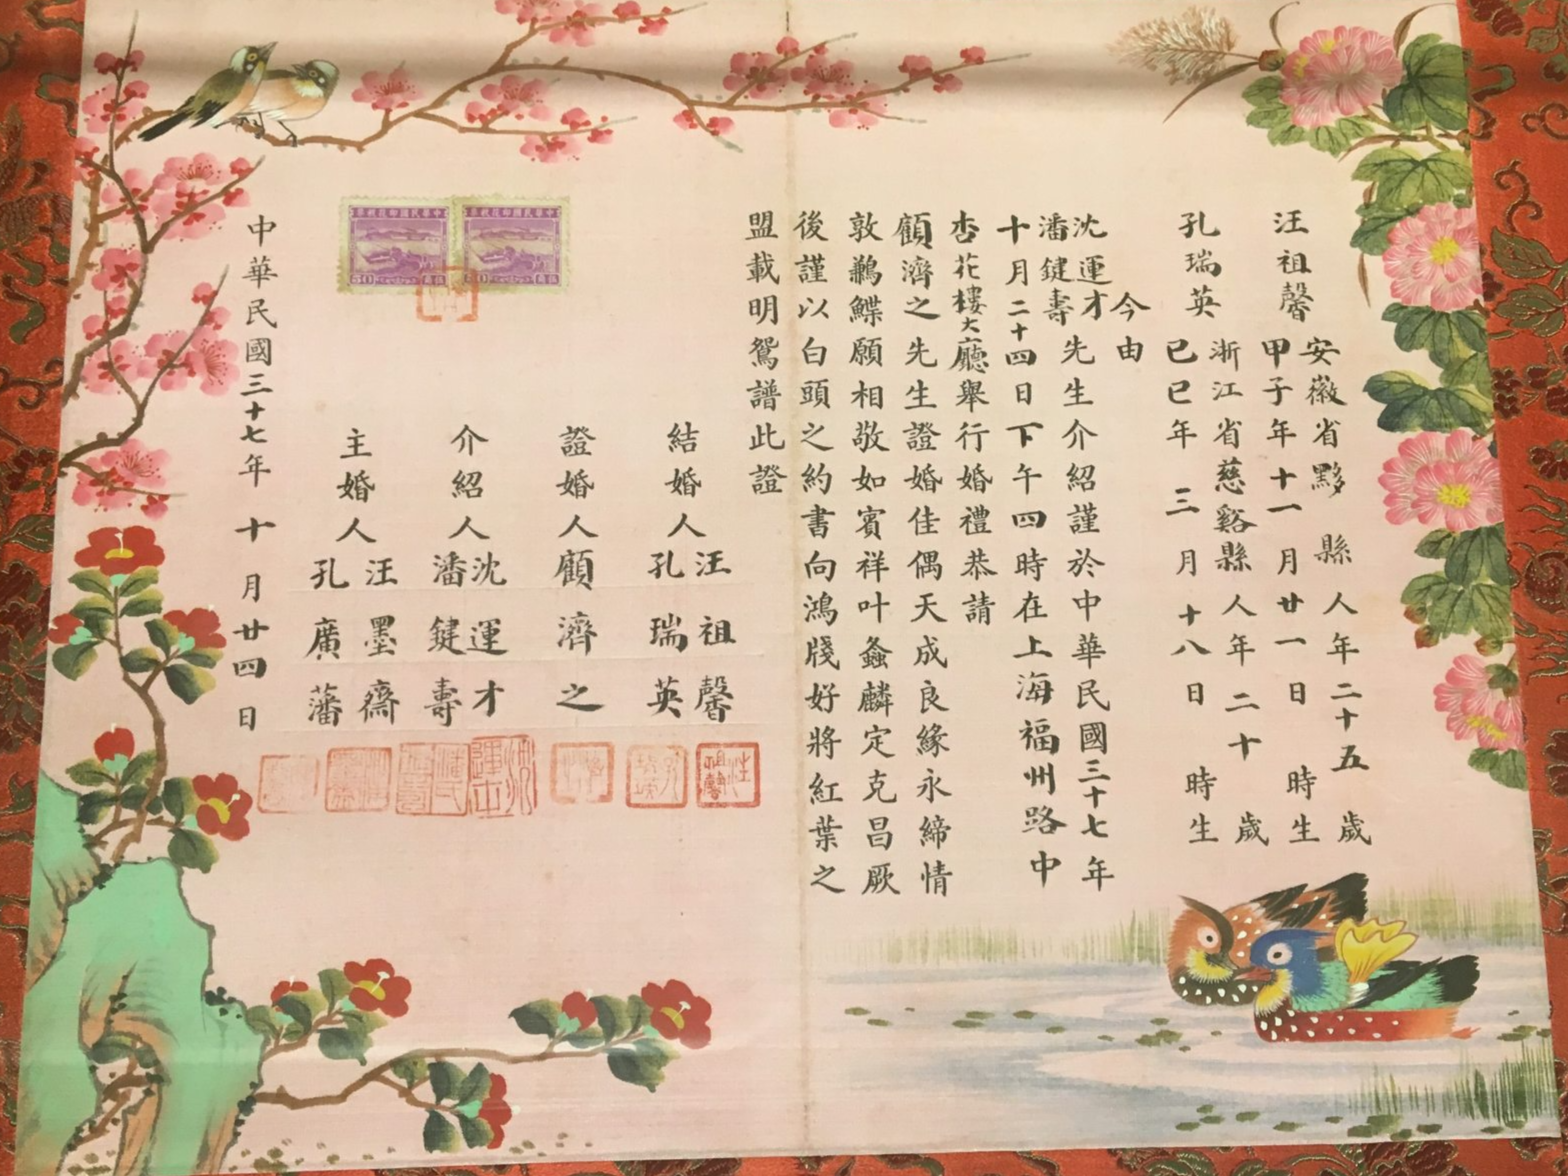 汪祖馨 安徽省黟縣人年二十五歲
甲子年十一月廿一日 時生
孔瑞英 浙江省慈谿縣人年二十歲
己巳年三月十八日 時生
今由
沈運才
潘鍵壽 先生介紹謹於中華民國三十七年
十月二十四日下午四時在上海福州路中
杏花樓大廳舉行婚禮恭請
顧濟之先生證婚佳偶天成良緣永締情
敦鶼鰈願相敬如賓祥叶螽麟定克昌厥
後謹以白頭之約書向鴻牋好將紅葉之
盟載明鴛譜此證
結婚人 汪祖馨
孔瑞英
證婚人 顧濟之
介紹人 沈運才
潘鍵壽
主婚人 汪墨齋
孔廣藩
中華民國三十七年十月廿四日